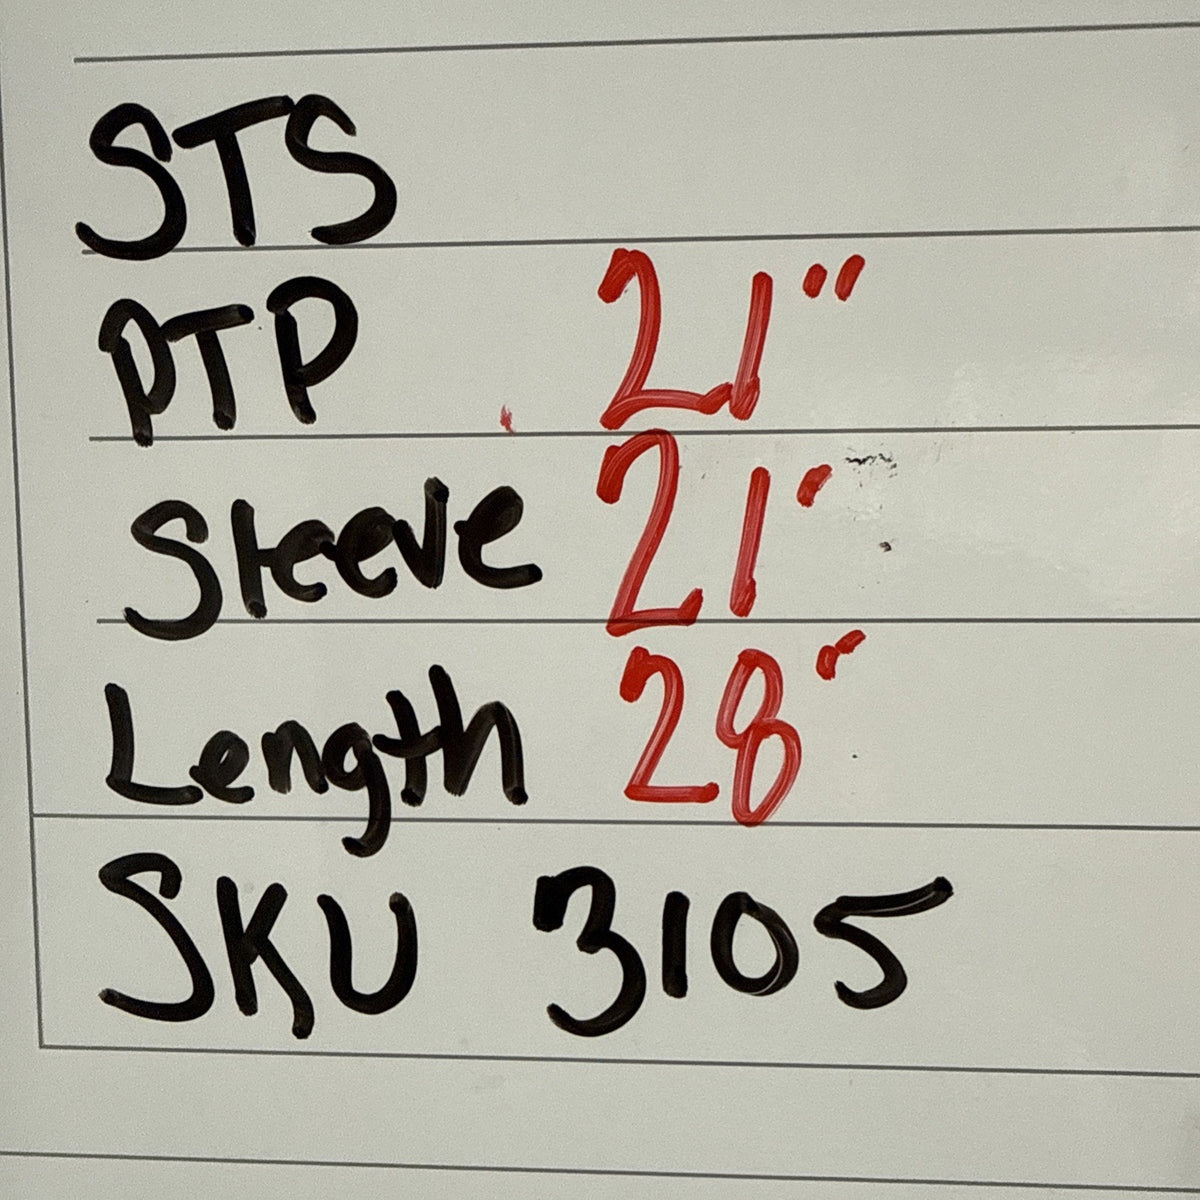 STS
PTP 21"
Sleeve 21"
Length 28"
SKU 3105